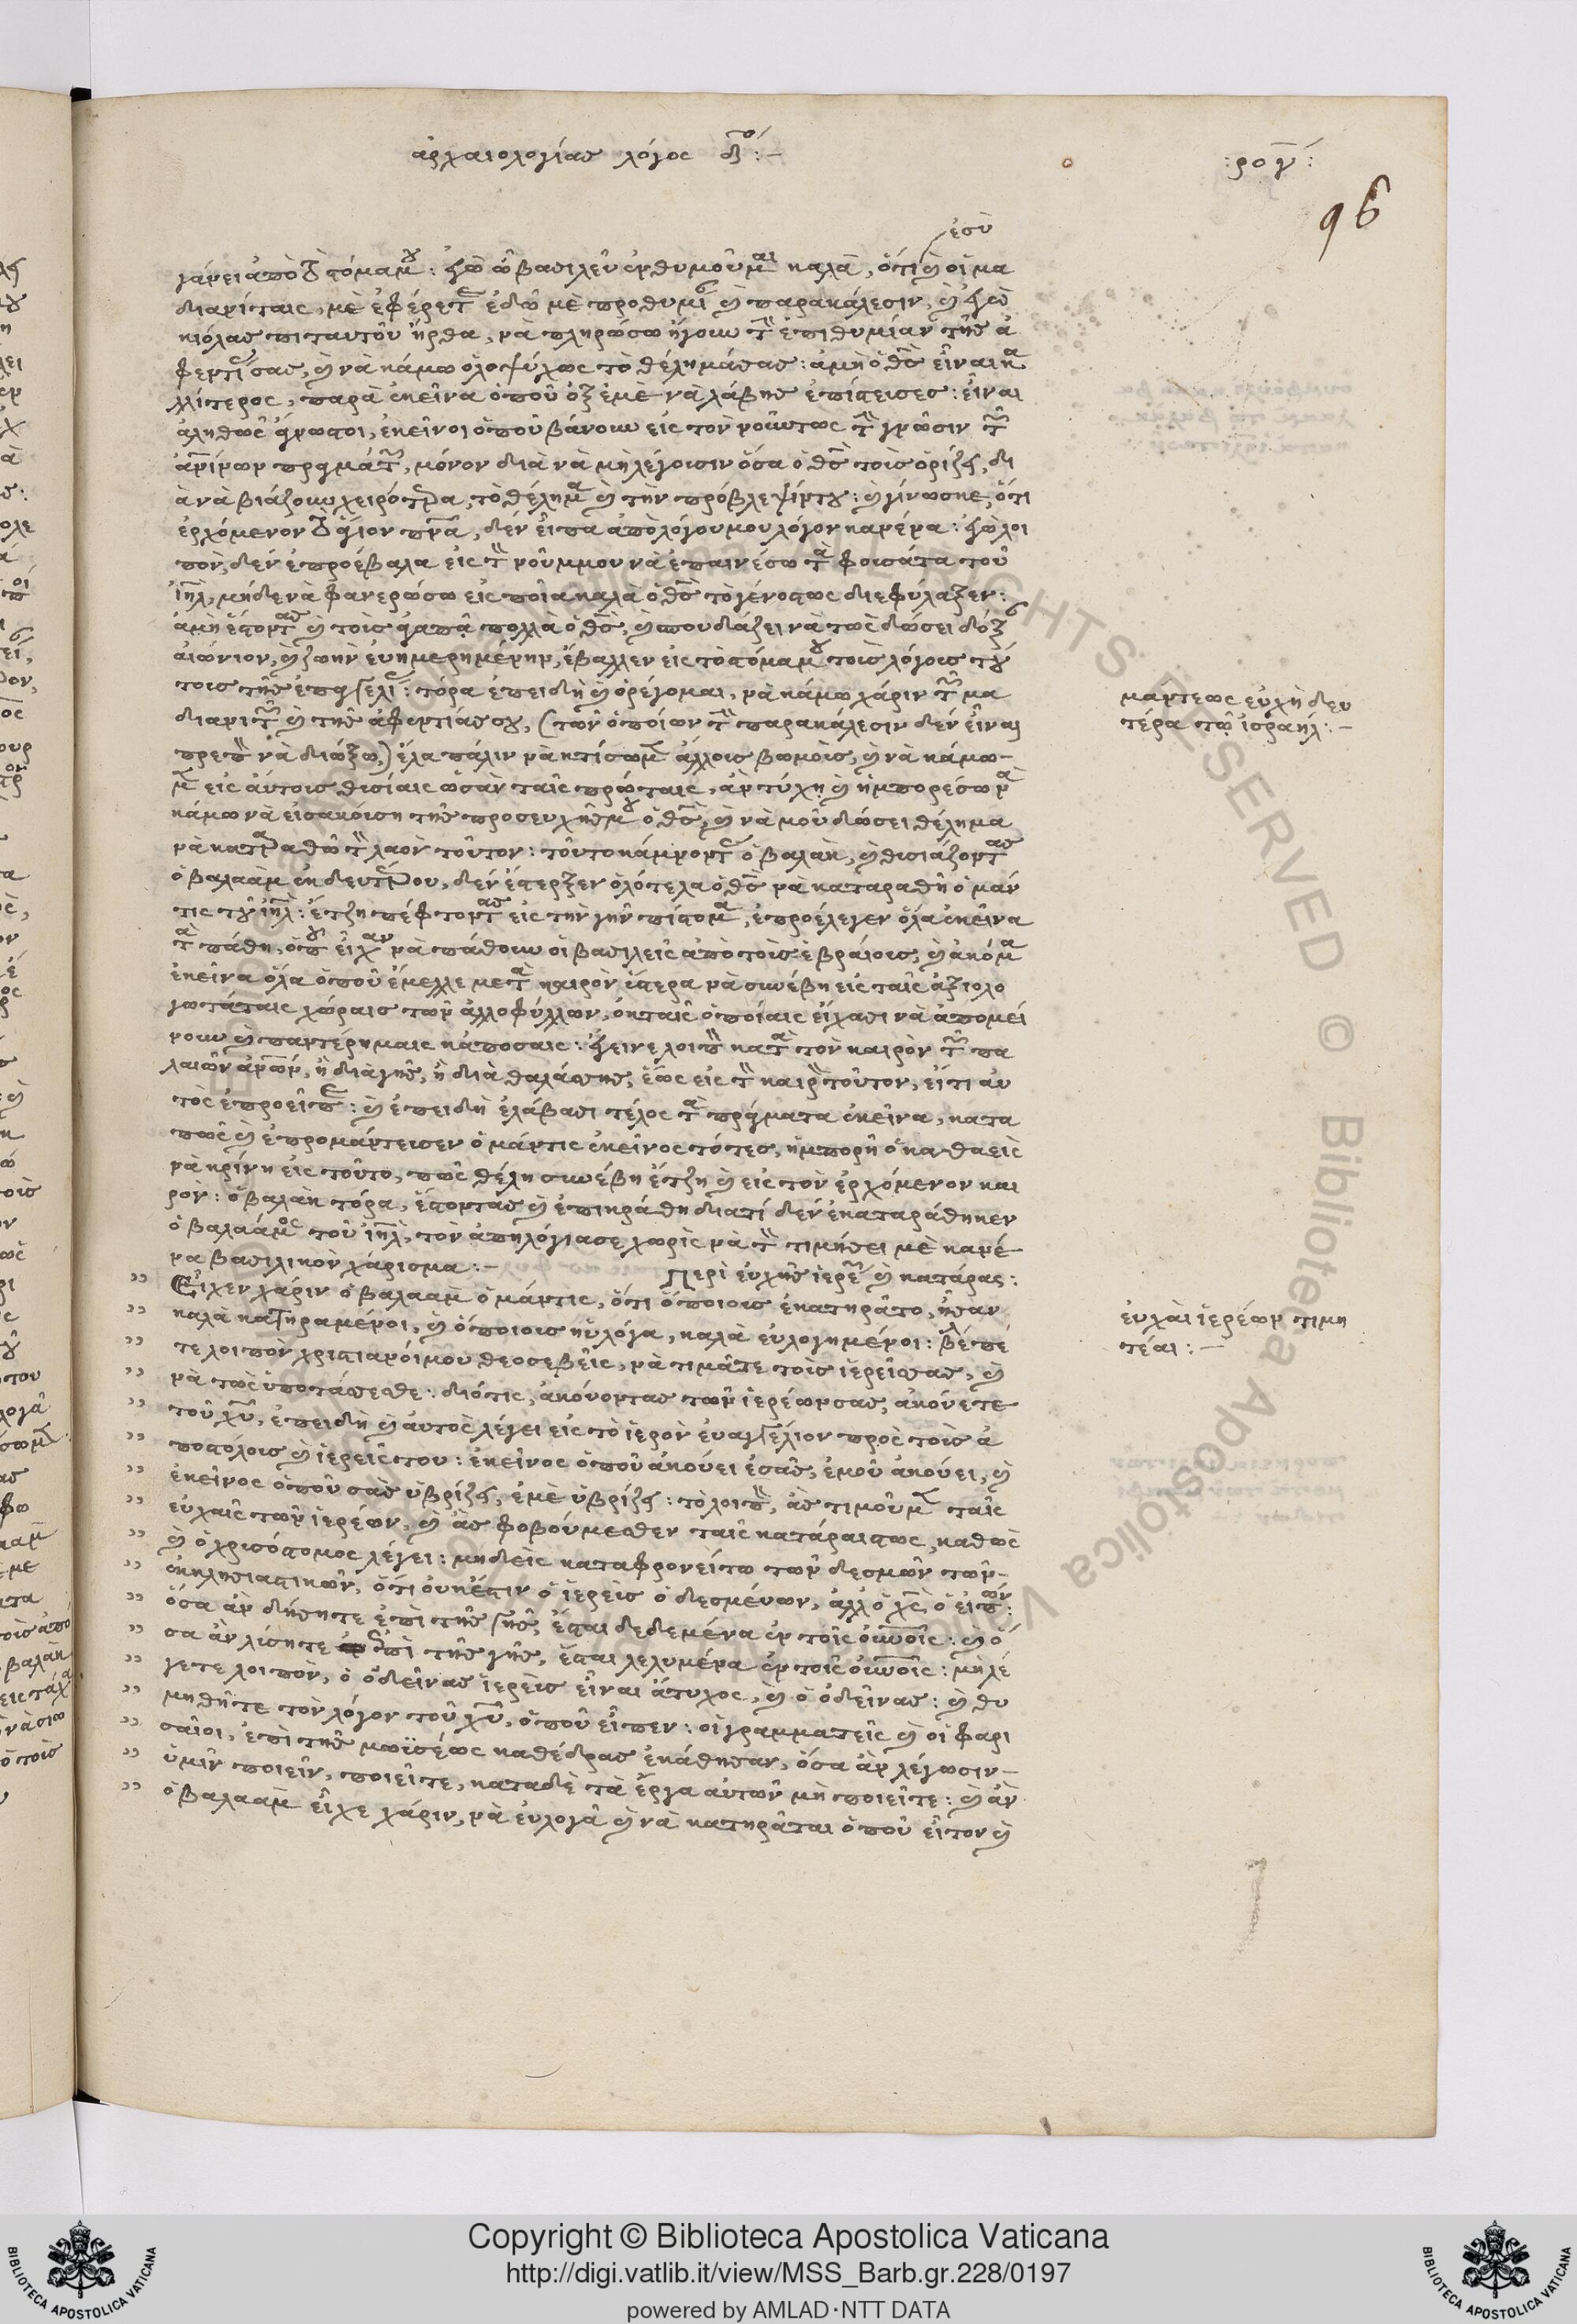 ἀρχαιολογίας λόγος δ:-
:ρογ:
96
ἐσὺ
γαίνει ἀπὸ τὸ στόμα μου: ἐγὼ ὦ βασιλεῦ ἐνθυμοῦμαι καλὰ, ὅτι καὶ οἱ μα
διανίταις, μὲ ἐφέρετε ἐδῶ μὲ προθυμία καὶ παρακάλεσιν, καὶ ἐγὼ
νὰ πληρώσω ἤγουν τὴν ἐπιθυμίαν τῆς ἀ
φεντίας σας, καὶ νὰ κάμω ὁλοψύχως τὸ θέλημά σας: ἀμὴ ὁ θς εἶναι κα
λλίτερος, παρὰ ἐκεῖνα ὁποῦ ἐξ ἐμὲ νὰ λάβης ἐπίστεισες: εἶναι
ἀληθῶς ἐκεῖνοι ὁποῦ βάνουν εἰς τον νοῦν τως τὴν γνῶσιν τῶν
πραγμάτων, μόνον διὰ νὰ μὴ λέγοισιν ὅσα ὁ θς τοὶς ὁρίζει, δι
ὰ νὰ βιάζουν χειρότερα, τὸ θέλημα καὶ τὴν πρόβλεψίν του: καὶ γίνωσκε, ὅτι
ἐρχόμενον τὸ ἅγιον πνα, δὲν εἶπα ἀπὸ λόγου μου λόγον κανένα: ἐγὼ λοι
πὸν, δὲν ἐπροέβαλα εἰς τὸν νοῦν μου νὰ ἐπαινέσω τὰ φοισάτα τοῦ
ιηλ, μήδε νὰ φανερώσω εἰς ποῖα καλὰ ὁ θς τὸ γένος τως διεφύλαξεν:
ἀμὴ ἔστοντας καὶ τοὶς ἀγαπᾷ πολλὰ ὁ θς, καὶ σπουδάζει νὰ τῶς δώσει δόξα
αἰώνιον, καὶ ζωὴν εὐημερημένην, ἔβαλλεν εἰς τὸ στόμα μου τοὶς λόγοις τού
τοις τῆς ἐπαγγελίας: τόρα ἐπειδὴ καὶ ὀρέγομαι, νὰ κάμω χάριν τῶν μα
διανιτῶν καὶ τῆς ἀφεντίας σου, (τῶν ὁποίων τὴν παρακάλεσιν δὲν εἶναι
πρεπὸν νὰ διώξω,) ἔλα πάλιν νὰ κτίσωμεν ἄλλοις βωμοὶς, καὶ νὰ κάμω-
μεν εἰς αὐτοὶς θισίαις ὡσὰν ταῖς πρώταις, ἂν τύχη καὶ ἠμπορέσω νὰ
κάμω νὰ εἰσακούση τῆς προσευχῆς μου ὁ θς, καὶ νὰ μοῦ δώσει θέλημα
νὰ καταραθῶ τὸν λαὸν τοῦτον: τοῦτο κάμνοντας ὁ βαλὰκ, καὶ θισιάζοντας
ὁ βαλαὰμ ἐκ δευτέρου, δὲν ἔστερξεν ὁλότελα ὁ θς νὰ καταραθῆ ὁ μάν
τις τοῦ ιηλ: ἔτζη πέφτοντας εἰς τὴν γῆν πίστομα, ἐπροέλεγεν ὅλα ἐκεῖνα
τὰ πάθη, ὁποῦ εἶχαν νὰ πάθουν οἱ βασιλεῖς ἀπὸ τοὶς ἑβραίοις, καὶ ἀκόμα
ἐκεῖνα ὅλα ὁποῦ ἔμελλε μετὰ καιρὸν ὕστερα νὰ συνέβη εἰς ταῖς ἀξιολο
γωτάταις χώραις τῶν ἀλλοφύλλων, ἐκ ταῖς ὁποίαις εἴχασι νὰ ἀπομεί
νουν καὶ παντέρημαις κάποσαις: ἔγεινε λοιπὸν κατὰ τὸν καιρὸν τῶν πα
λαιῶν ἀνων, ἢ διὰ γῆς, ἢ διὰ θαλάσσης, ἕως εἰς τὸν καιρὸν τοῦτον, εἴτι αὐ
τὸς ἐπροεῖπε: καὶ ἐπειδὴ ἐλάβασι τέλος τὰ πράγματα ἐκεῖνα, κατα
πῶς καὶ ἐπρομάντεισεν ὁ μάντις ἐκεῖνος τότες, ἠμπορῆ ὁ καθαεὶς
νὰ κρίνη εἰς τοῦτο, πῶς θέλη συνέβη ἔτζη καὶ εἰς τὸν ἐρχόμενον και
ρόν: ὁ βαλὰκ τόρα, ἔστοντας καὶ ἐπικράθη διατὶ δὲν ἐκαταράθηκεν
ὁ βαλαάμος τοῦ ιηλ, τὸν ἀπηλόγιασε χωρὶς νὰ τὸν τιμήσει μὲ κανέ-
να βασιλικὸν χάρισμα:- Περὶ εὐχῆς ἱερέων καὶ κατάρας:
Εἶχεν χάριν ὁ βαλαὰμ ὁ μάντις, ὅτι ὁποίοις ἐκατηρᾶτο, ἦσαν
καλὰ κατηραμένοι, καὶ ὁποίοις ηὐλόγα, καλὰ εὐλογημένοι: βλέπε
τε λοιπὸν χριστιανοί μου θεοσεβεῖς, νὰ τιμᾶτε τοὶς ἱερεῖς σας, καὶ
νὰ τῶς ὑποτάσσεσθε: διότις, ἀκούοντας τῶν ἱερέων σας, ἀκούετε
τοῦ χυ, ἐπειδὴ καὶ αὐτὸς λέγει εἰς τὸ ἱερὸν εὐαγγέλιον πρὸς τοὶς ἀ
ποστόλοις καὶ ἱερεῖς του: ἐκεῖνος ὁποῦ ἀκούει ἐσᾶς, ἐμοῦ ἀκούει, καὶ
ἐκεῖνος ὁποῦ σᾶς ὑβρίζει, ἐμὲ ὑβρίζει: τὸ λοιπὸν, ἂς τιμοῦμεν ταῖς
εὐχαῖς τῶν ἱερέων, καὶ ἂς φοβούμεσθεν ταῖς κατάραις τως, καθὼς
καὶ ὁ χρισόστομος λέγει: μηδεὶς καταφρονείτω τῶν δεσμῶν τῶν-
ἐκκλησιαστικῶν, ὅτι οὐκ ἔστιν ὁ ἱερεὶς ὁ δεσμένων, ἀλλ ὁ χς ὁ εἰπών:
ὅσα ἂν δήσητε ἐπὶ τῆς γῆς, ἔσται δεδεμένα ἐν τοῖς οὐνοῖς: καὶ ὅ
σα ἂν λίσητε ἐπὶ τῆς γῆς, ἔσται λελυμένα ἐν τοῖς οὐνοῖς: μὴ λέ
γετε λοιπὸν, ὁ ὁδεῖνας ἱερεὶς εἶναι ἄτυχος, καὶ ὁ ὁδεῖνας: καὶ θυ
μηθῆτε τὸν λόγον τοῦ χυ, ὁποῦ εἶπεν: οἱ γραμματεῖς καὶ οἱ φαρι
σαῖοι, ἐπὶ τῆς μωϊσέως καθέδρας ἐκάθησαν, ὅσα ἂν λέγωσιν-
ὑμῖν ποιεῖν, ποιεῖτε, κατὰ δὲ τὰ ἔργα αὐτῶν μὴ ποιεῖτε: καὶ ἂν
ὁ βαλαὰμ εἶχε χάριν, νὰ εὐλογᾶ καὶ νὰ κατηρᾶται ὁποῦ εἶτον καὶ
μάντεως εὐχὴ δευ
τέρα τῷ ἰσραήλ:-
εὐχαὶ ἱερέων τιμη
τέαι:-
Copyright © Biblioteca Apostolica Vaticana
http://digi.vatlib.it/view/MSS_Barb.gr.228/0197
powered by AMLAD·NTT DATA
BIBLIOTECA APOSTOLICA VATICANA
BIBLIOTECA APOSTOLICA VATICANA